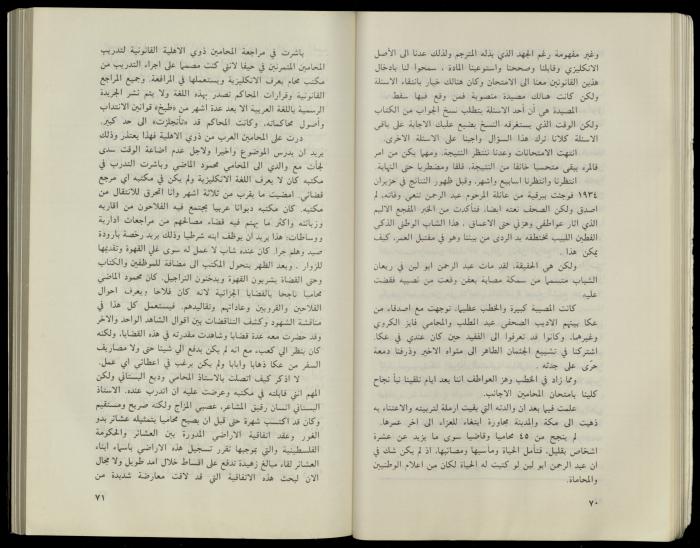 وغير مفهومة رغم الجهد الذي بذله المترجم ولذلك عدنا الى الأصل
الانكليزي وقابلنا وصححنا واستوعبنا المادة . سمحوا لنا بادخال
هذين القانونين معنا الى الامتحان وكان هنالك خيار بانتقاء الاسئلة
ولكن كانت هنالك مصيدة منصوبة فمن وقع فيها سقط .
المصيدة هي أن أحد الاسئلة يتطلب نسخ الجواب من الكتاب
ولكن الوقت الذي يستغرقه النسخ يضيع عليك الاجابة على باقي
الاسئلة كلانا ترك هذا السؤال واجبنا على الاسئلة الاخرى .
انتهت الامتحانات وعدنا ننتظر النتيجة، ومهما يكن من امر
فالمرء يبقى متحسبا خائفا من النتيجة، قلقا ومضطربا حتى النهاية.
انتظرنا وانتظرنا اسابيع واشهر، وقبل ظهور النتائج في حزيران
١٩٣٤ فوجئت ببرقية من عائلة المرحوم عبد الرحمن تنعي وفاته، لم
اصدق ولكن الصحف نعته ايضا، فتأكدت من الخبر المفجع الاليم
الذي اثار عواطفي وهزني حتى الاعماق . هذا الشاب الوطني الذكي
الفطين اللبيب تختطفه يد الردى من بيننا وهو في مقتبل العمر، كيف
يمكن هذا .
ولكن هي الحقيقة، لقد مات عبد الرحمن ابو لبن في ريعان
الشباب متسمما من سمكة مصابة بعفن وقعت من نصيبه فقضت
عليه.
كانت المصيبة كبيرة والخطب عظيما، توجهت مع اصدقاء من
عكا بينهم الاديب الصحفي عبد المطلب والمحامي فايز الكردي
وغيرهما، وكانوا قد تعرفوا الى الفقيد حين كان عندي في عكا.
اشتركنا في تشييع الجثمان الطاهر الى مثواه الاخير وذرفنا دمعة
حرى على جدثه .
ومما زاد في الخطب وهز العواطف اننا بعد ايام تلقينا نبأ نجاح
كلينا بامتحان المحامين الاجانب.
علمت فيما بعد ان والدته التي بقيت ارملة لتربيته والاعتناء به
ذهبت الى مكة والمدينة مجاورة ابتغاء للعزاء الى اخر عمرها.
لم ينجح من ٤٥ محاميا وقاضيا سوى ما يزيد عن عشرة
اشخاص بقليل، فتأمل الحياة ومآسيها ومصائبها، اذ لم يكن شك في
ان عبد الرحمن ابو لبن لو كتبت له الحياة لكان من اعلام الوطنيين
والمحاماة.
٧٠
باشرت في مراجعة المحامين ذوي الاهلية القانونية لتدريب
المحامين المتمرنين في حيفا لانني كنت مصمما على اجراء التدريب من
مكتب محام يعرف الانكليزية ويستعملها في المرافعة. وجميع المراجع
القانونية وقرارات المحاكم تصدر بهذه اللغة ولا يتم نشر الجريدة
الرسمية باللغة العربية الا بعد عدة اشهر من «طبخ» قوانين الانتداب
وأصول محاكماته، وكانت المحاكم قد «تأنجلزت» الى حد كبير.
درت على المحامين العرب من ذوي الاهلية فهذا يعتذر وذلك
يريد ان يدرس الموضوع واخيرا ولاجل عدم اضاعة الوقت سدى
لجأت مع والدي الى المحامي محمود الماضي وباشرت التدرب في
مكتبه كان لا يعرف اللغة الانكليزية ولم يكن في مكتبه اي مرجع
قضائي. امضيت ما يقرب من ثلاثة اشهر وانا اتحرق للانتقال من
مكتبه. كان مكتبه ديوانا عربيا يجتمع فيه الفلاحون من اقاربه
وزبائنه واكثر ما يهتم فيه قضاء مصالحهم من مراجعات ادارية
ووساطات: هذا يريد ان يوظف ابنه شرطيا وذلك يريد رخصة بارودة
صيد وهلم جرا. كان عنده شاب لا عمل له سوى غلي القهوة وتقديمها
للزوار . وبعد الظهر يتحول المكتب الى مضافة للموظفين والكتاب
وحتى القضاة يشربون القهوة ويدخنون التراجيل. كان محمود الماضي
محاميا ناجحا بالقضايا الجزائية لانه كان فلاحا ويعرف احوال
الفلاحين والقرويين وعاداتهم وتقاليدهم. فيستعمل كل هذا في
مناقشة الشهود وكشف التناقضات بين اقوال الشاهد الواحد والاخر
وقد حضرت معه عدة قضايا وشاهدت مقدرته في هذه القضايا، ولكنه
كان ينظر الي كعبء مع انه لم يكن يدفع الي شيئا حتى ولا مصاريف
السفر من عكا ذهابا وايابا ولم يكن يرغب في اعطائي اي عمل.
لا اذكر كيف اتصلت بالاستاذ المحامي وديع البستاني ولكن
المهم انني قابلته في مكتبه وعرضت عليه ان اتدرب عنده. الاستاذ
البستاني انسان رقيق المشاعر، عصبي المزاج ولكنه صريح ومستقيم
وكان قد اكتسب شهرة حتى قبل ان يصبح محاميا بتمثيله عشائر بدو
الغور وعقد اتفاقية الاراضي المدورة بين العشائر والحكومة
الفلسطينية والتي بموجبها تقرر تسجيل هذه الاراضي باسماء ابناء
العشائر لقاء مبالغ زهيدة تدفع على اقساط خلال امد طويل ولا مجال
الان لبحث هذه الاتفاقية التي قد لاقت معارضة شديدة من
٧١